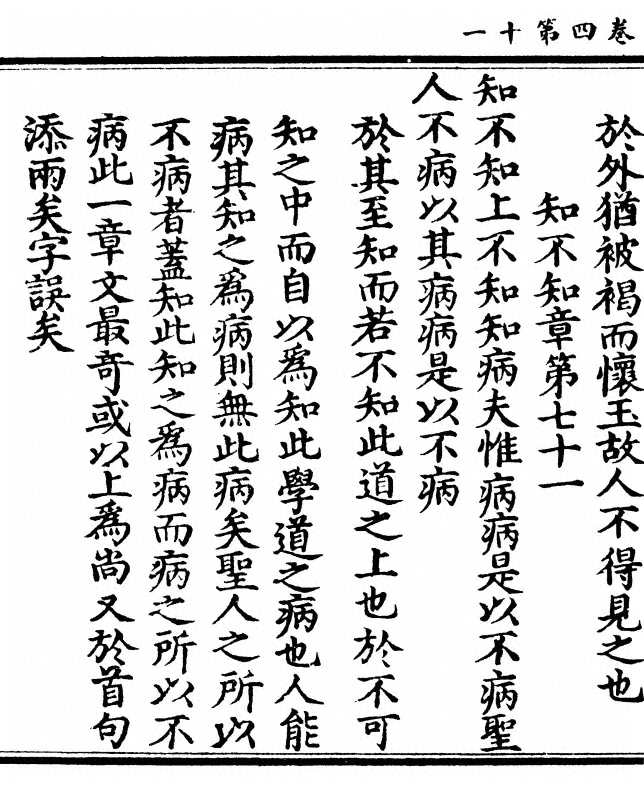 卷四第十一
於外猶被褐而懷玉故人不得見之也
知不知章第七十一
知不知上不知知病夫惟病病是以不病聖
人不病以其病病是以不病
於其至知而若不知此道之上也於不可
知之中而自以爲知此學道之病也人能
病其知之爲病則無此病矣聖人之所以
不病者蓋知此知之爲病而病之所以不
病此一章文最奇或以上爲尚又於首句
添兩矣字誤矣